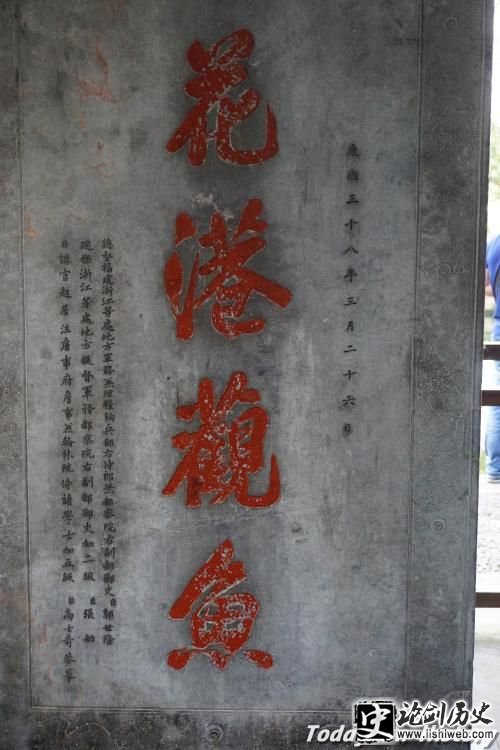 康熙三十八年三月二十六日
花港觀魚
總督福建浙江等處地方軍務兼理糧餉兵部右侍郎兼都察院右副都御史臣郭世隆
巡撫浙江等處地方提督軍務都察院右副都御史加二級臣張勄
日講官起居注詹事府詹事兼翰林院侍讀學士加五級臣高士奇恭摹
Toda
史 论剑历史
www.lishiweb.com